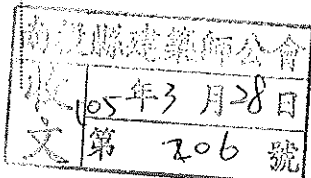 南投縣建築師公會
收文
105年3月28日
第 206 號